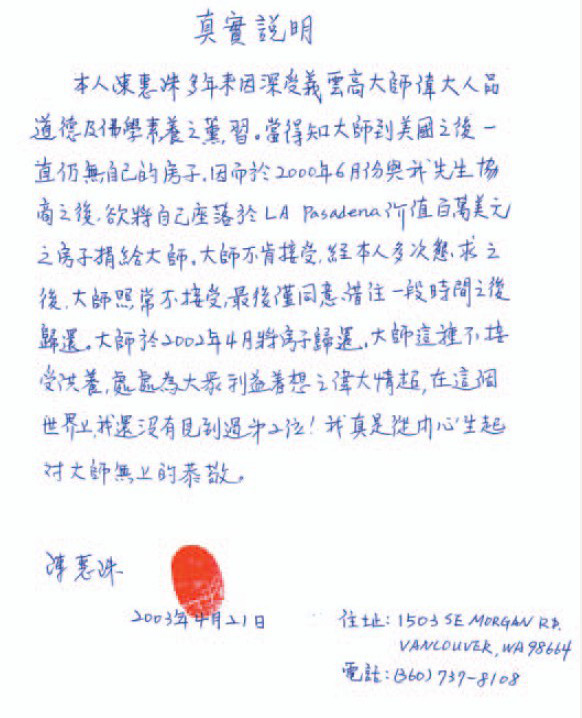 真實說明
本人陳惠姝多年來因深受義雲高大師偉大人品
道德及佛學素養之薰習。當得知大師到美國之後一
直仍無自己的房子,因而於2000年6月份與我先生協
商之後,欲將自己座落於LA Pasadena价值百萬美元
之房子捐給大師,大師不肯接受,經本人多次懇求之
後,大師照常不接受,最後僅同意借住一段時間之後
歸還。大師於2002年4月將房子歸還,大師這種不接
受供養,處處為大眾利益著想之偉大情超,在這個
世界上,我還沒有見到過第2位!我真是從內心生起
对大師無上的恭敬。
陳惠姝
2003年4月21日
住址:1503 SE MORGAN RD.
VANCOUVER, WA 98664
電話:(360) 737-8108